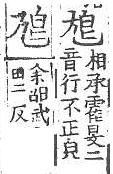 相承霍旻二
音行不正皃
余昭武
田二反